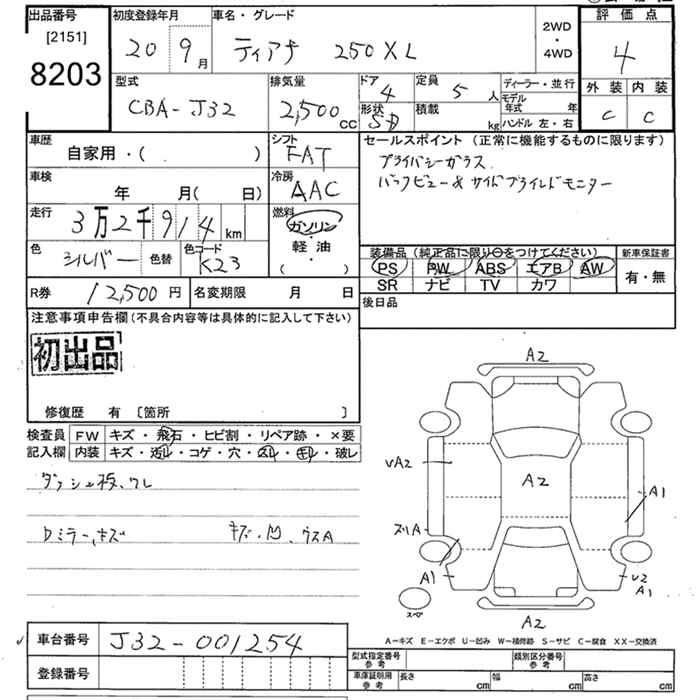 出品番号
[2151]
8203
初度登録年月
20 9月
車名・グレード
ティアナ 250XL
2WD
・
4WD
評価点
4
外装 内装
C C
型式
CBA-J32
排気量
2,500cc
ドア
4
形状
SD
定員
5人
積載
kg
ディーラー・並行
モデル年式 年
ハンドル 左・右
車歴
自家用・( )
シフト
FAT
車検
年 月( 日)
冷房
AAC
走行
3万2千914km
燃料
ガソリン
・
軽・油
( )
色
シルバー
色替
色コード
K23
セールスポイント (正常に機能するものに限ります)
プライバシーガラス
バックビュー&サイドブラインドモニター
装備品 (純正品に限り○をつけてください)
PS PW ABS エアB AW
SR ナビ TV カワ
新車保証書
有・無
R券 12,500円
名変期限 月 日
後日品
注意事項申告欄(不具合内容等は具体的に記入して下さい)
初出品
修復歴 有 [箇所 ]
検査員
記入欄
FW キズ・飛石・ヒビ割・リペア跡・×要
内装 キズ・汚レ・コゲ・穴・スレ・キレ・破レ
ダッシュ板、ワレ
Dミラー、キズ キズ・凹、ウスA
A2
UA2
A2
A1
ズリA
A1
U2
A1
スペア
A2
A-キズ E-エクボ U-凹み W-補修跡 S-サビ C-腐食 XX-交換済
車台番号 J32-001254
登録番号
型式指定番号
参考
類別区分番号
参考
車庫証明用
参考
長さ cm 幅 cm 高さ cm